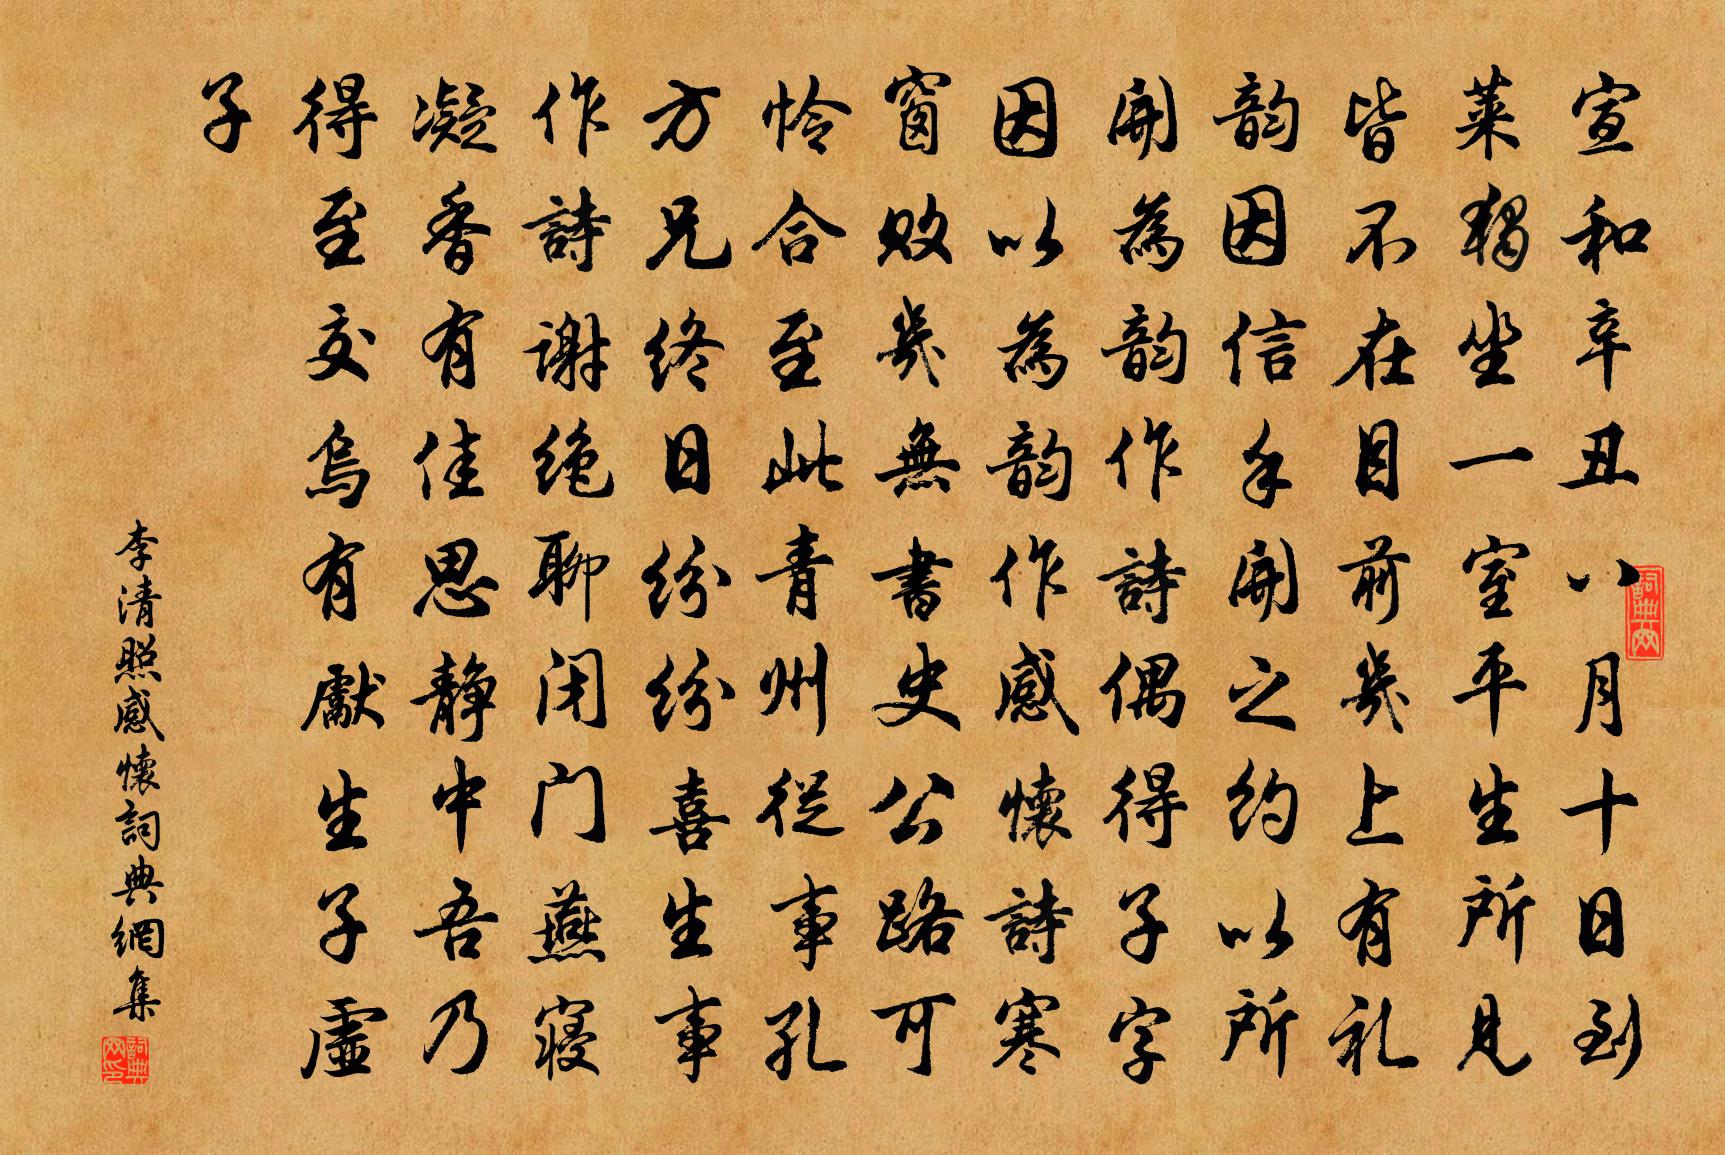 宣和辛丑八月十日到
萊獨坐一室平生所見
皆不在目前幾上有礼
韵因信手開之約以所
開為韵作詩偶得子字
因以為韵作感懷詩寒
窗敗幾無書史公路可
怜合至此青州從事孔
方兄終日紛紛喜生事
作詩謝絶聊闭门燕寝
凝香有佳思静中吾乃
得至交烏有獻生子虛
子
李清照感懷詞典網集
詞典网
詞典网印